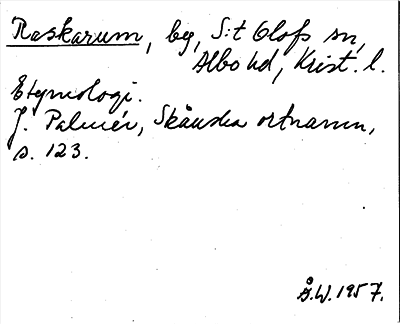 Raskarum, by, S:t Olofs sn,
Albo hd, Krist. l.
Etymologi.
J. Palmér, Skånska ortnamn,
s. 123.
Å.W. 1957.